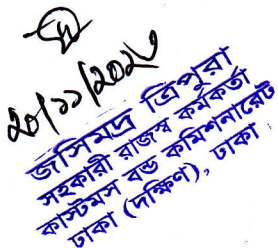 ২০/১১/২০২৮
জসিমদ্র ত্রিপুরা
সহকারী রাজস্ব কর্মকর্তা
কাস্টমস বন্ড কমিশনারেট
ঢাকা (দক্ষিণ), ঢাকা।